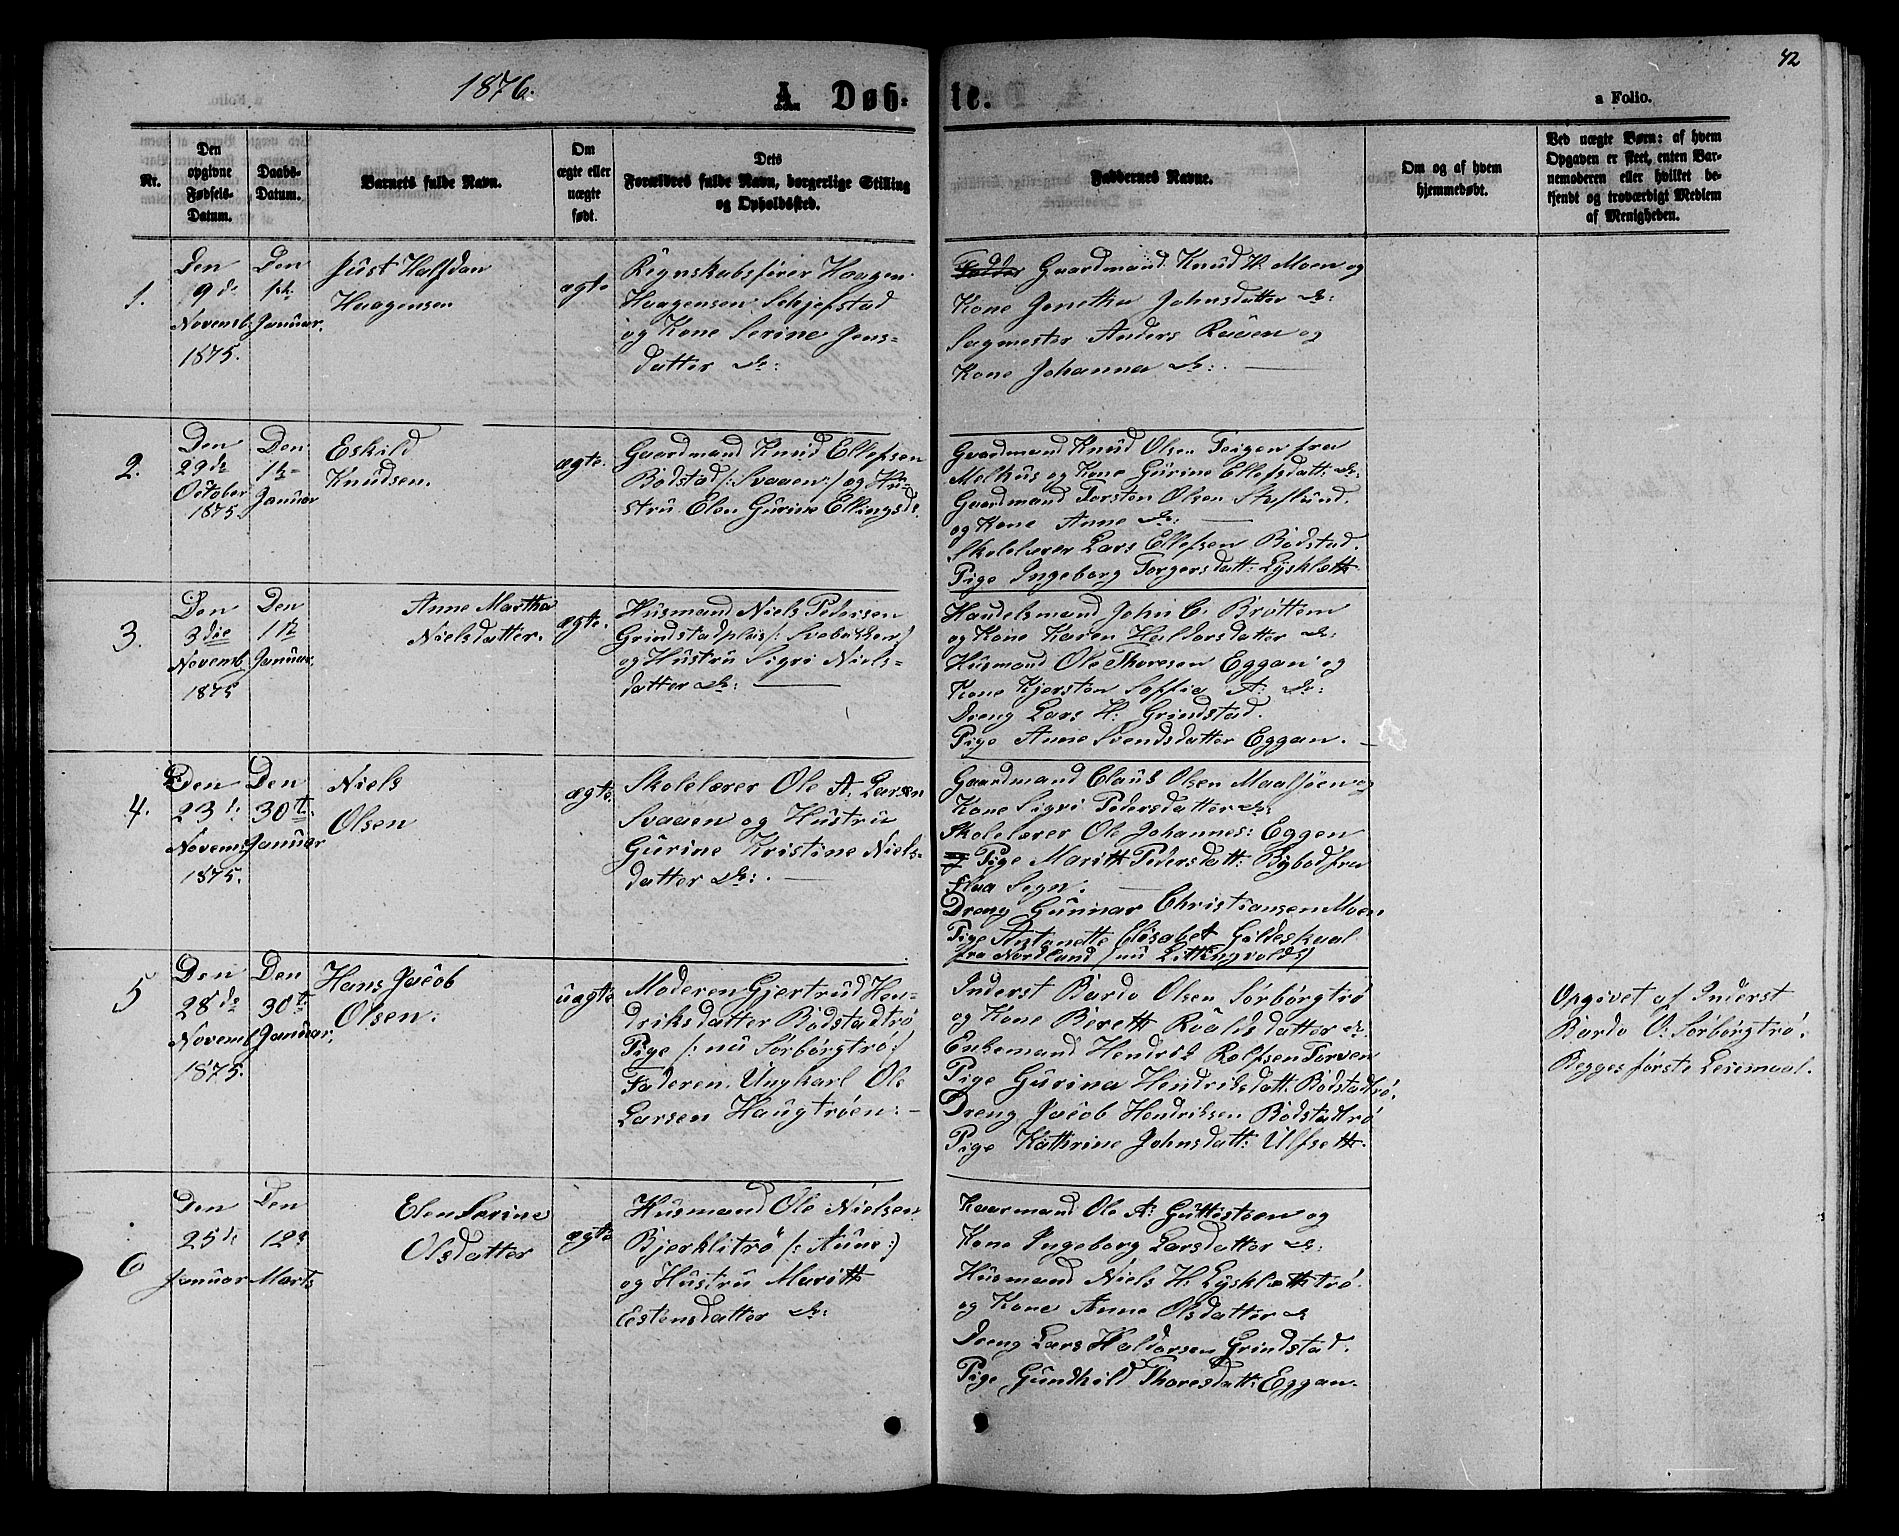 42
1876.
A. Døb-
te.
a Folio.
Nr.
Den opgivne Fødsels-Datum.
Daabs-Datum.
Barnets fulde Navn.
Om ægte eller uægte født.
Dets Forældres fulde Navn, borgerlige Stilling og Opholdssted.
Faddernes Navne.
Om og af hvem hjemmedøbt.
Ved uægte Børn: af hvem Opgaven er skeet, enten Barnemoderen eller hvilket bekjendt og troværdigt Medlem af Menigheden.
1.
Den
19de
Novemb.
1875.
Den
1ste
Januar.
Just Halfdan
Haagensen
ægte
Regnskabsfører Haagen
Haagensen Schjefstad
og Kone Serine Jens-
datter do:
Gaardmand Knud H. Moen og
Kone Jonetha Johnsdatter do:
Sagmester Anders Raaen og
Kone Johanna do:
2.
Den
29de
October
1875.
Den
1te
Januar
Eskild
Knudsen.
ægte.
Gaardmand Knud Ellefsen
Bodstad /: Svaaen :/ og Hu-
stru Elen Gurine Ellingsd.
Gaardmand Knud Olsen Teigen fra
Melhus og Kone Gurine Ellefsdatt: do:
Gaardmand Torsten Olsen Stoflund.
og Kone Anne do:
Skolelærer Lars Ellefsen Bodstad.
Pige Ingeborg Torgersdatt: Lysklætt
3.
Den
3die
Novemb.
1875
Den
1te
Januar.
Anne Martha
Nielsdatter.
ægte.
Husmand Niels Pedersen
Grindstadplads /: Svebakken :/
og Hustru Sigri Niels-
datter do:
Handelsmand John C. Brøttem
og Kone Karen Haldorsdatter do:
Husmand Ole Thoresen Eggan og
Kone Kjersten Soffia A: do:
Dreng Lars H: Grindstad.
Pige Anne Svendsdatter Eggan.
4.
Den
23de
Novemb.
1875.
Den
30te
Januar
Niels
Olsen
ægte
Skolelærer Ole A. Larsen
Svaaen og Hustru
Gurine Kristine Niels-
datter do:
Gaardmand Claus Olsen Maalsjøen og
Kone Sigri Pedersdatter do:
Skolelærer Ole Johannes: Eggen
Pige Maritt Pedersdatt: Bybod fra
Flaa Sogn.
Dreng Gunnar Christiansen Moen
Pige Antonette Elisabet Gildeskaal
fra Nordland /nu Litlugvolds/
5
Den
28de
Novemb.
1875.
Den
30te
Januar.
Hans Jacob
Olsen.
uægte
Moderen Gjertrud Hen-
driksdatter Bodstadtrø
Pige /: nu Sørborgtrø :/
Faderen Ungkarl Ole
Larsen Haugtrøen:
Inderst Bardo Olsen Sørborgtrø
og Kone Berett Roaldsdatter do:
Enkemand Hendrik Rolfsen Torven
Pige Gurina Hendriksdatt: Bodstadtrø.
Dreng Jacob Hendriksen Bodstadtrø
Pige Kathrine Johnsdatt: Ulfsett.
Opgivet af Inderst
Bardo O. Sørborgtrø.
Begges første Leiemaal.
6
Den
25de
Januar
Den
12te
Marts
Elen Serine
Olsdatter
ægte
Husmand Ole Nielsen
Bjerklitrø /: Aune :/
og Hustru Maritt
Estensdatter do:
Kaarmand Ole A: Guttostoen og
Kone Ingeborg Larsdatter do:
Husmand Niels H: Lysklætttrø.
og Kone Anne Olsdatter do
Dreng Lars Haldorsen Grindstad.
Pige Gundhild Thoresdatt: Eggan.